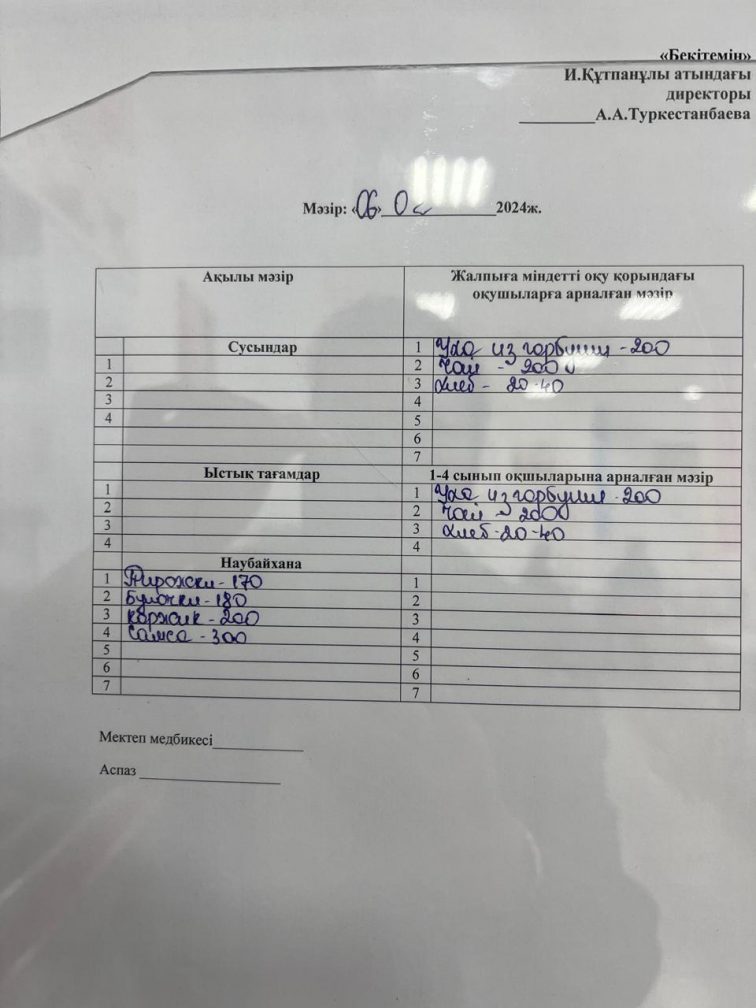 «Бекітемін»
И.Құтпанұлы атындағы
директоры
__________А.А.Туркестанбаева
Мәзір: «06» 0 ______________2024ж.
Ақылы мәзір
Жалпыға міндетті оқу қорындағы
оқушыларға арналған мәзір
Сусындар
1 Уха из горбуши - 200
1
2 Чай - 200
2
3 Хлеб - 20-40
3
4
4
5
6
7
Ыстық тағамдар
1-4 сынып оқшыларына арналған мәзір
1
1 Уха из горбуши - 200
2
2 Чай - 200
3
3 Хлеб - 20-40
4
4
Наубайхана
1 Пирожки - 170
1
2 Булочки - 180
2
3 Коржик - 200
3
4 Самса - 300
4
5
5
6
6
7
7
Мектеп медбикесі____________
Аспаз ___________________